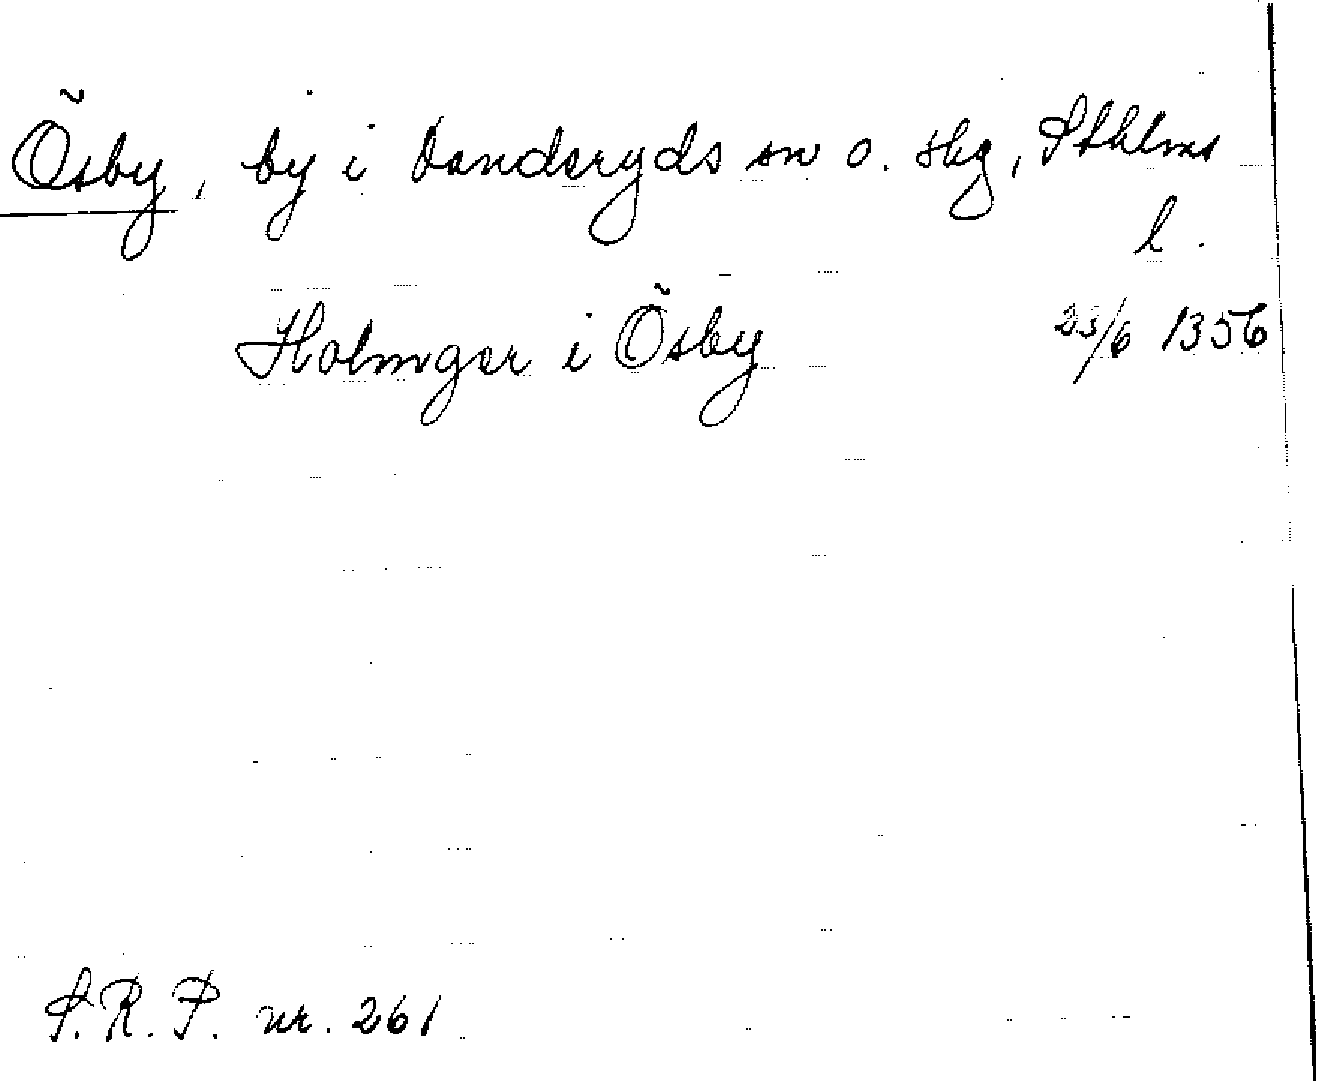 Ösby, by i Danderyds sn o. skg, Sthlms
l.
Holmger i Ösby 23/6 1356
S.R.P. nr. 261